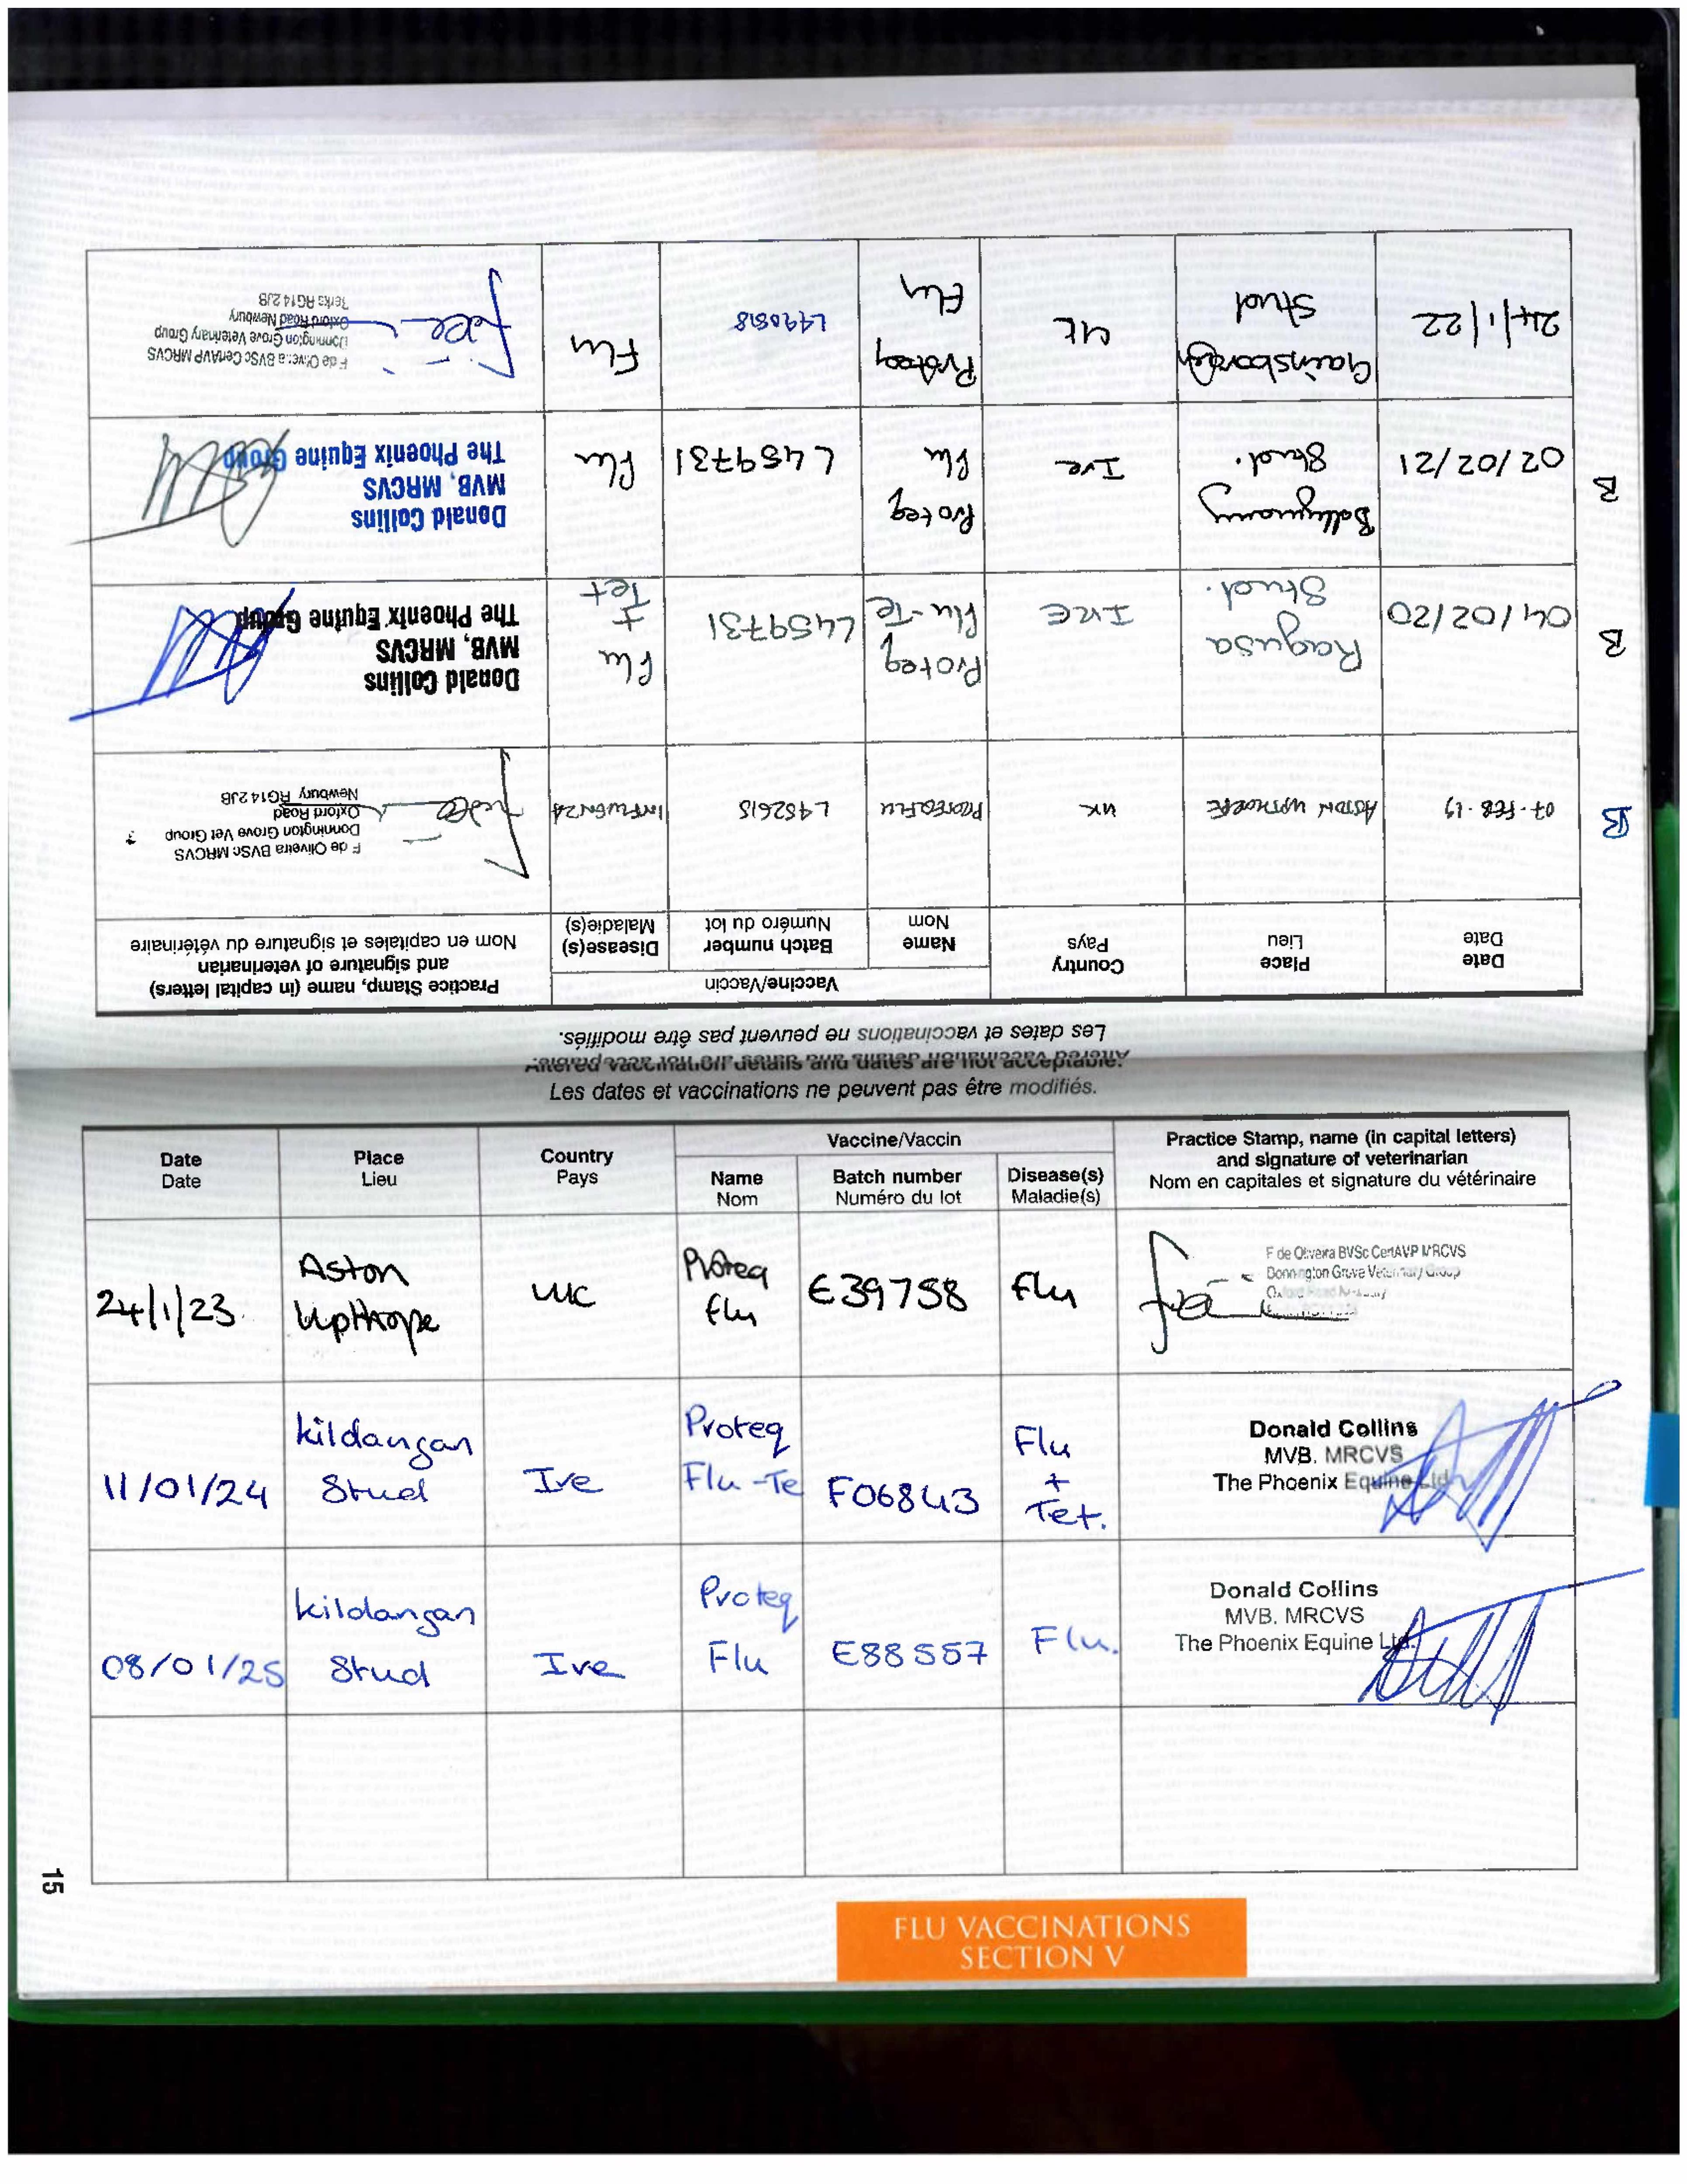 Les dates et vaccinations ne peuvent pas être modifiés.
Date
Date
Place
Lieu
Country
Pays
Vaccine/Vaccin
Name
Nom
Batch number
Numéro du lot
Disease(s)
Maladie(s)
Practice Stamp, name (in capital letters)
and signature of veterinarian
Nom en capitales et signature du vétérinaire
B
07-FEB-19
ASTON UPTHORPE
UK
PROTEQFLU
L452615
F de Oliveira BVSc MRCVS
Donnington Grove Vet Group
Oxford Road
Newbury RG14 2JB
B
04/02/20
Ragusa
Stud.
IRE
Proteq
Flu-Te
L459731
Flu
+
Tet
Donald Collins
MVB, MRCVS
The Phoenix Equine Group
B
02/02/21
Ballymany
Stud.
Ire
Proteq
Flu
L459731
Flu
Donald Collins
MVB, MRCVS
The Phoenix Equine Group
24/1/22
Gainsborough
Stud
UK
Proteq
Flu
L490518
Flu
F de Oliveira BVSc CertAVP MRCVS
Donnington Grove Veterinary Group
Oxford Road Newbury
RG14 2JB
Altered vaccination details and dates are not acceptable.
Les dates et vaccinations ne peuvent pas être modifiés.
Date
Date
Place
Lieu
Country
Pays
Vaccine/Vaccin
Name
Nom
Batch number
Numéro du lot
Disease(s)
Maladie(s)
Practice Stamp, name (in capital letters)
and signature of veterinarian
Nom en capitales et signature du vétérinaire
24/1/23
Aston
Upthorpe
UK
Proteq
Flu
E39758
Flu
F de Oliveira BVSc CertAVP MRCVS
Donnington Grove Veterinary Group
11/01/24
Kildangan
Stud
Ire
Proteq
Flu-Te
F06843
Flu
+
Tet.
Donald Collins
MVB. MRCVS
The Phoenix Equine Ltd
08/01/25
Kildangan
Stud
Ire
Proteq
Flu
E88557
Flu.
Donald Collins
MVB. MRCVS
The Phoenix Equine Ltd.
15
FLU VACCINATIONS
SECTION V